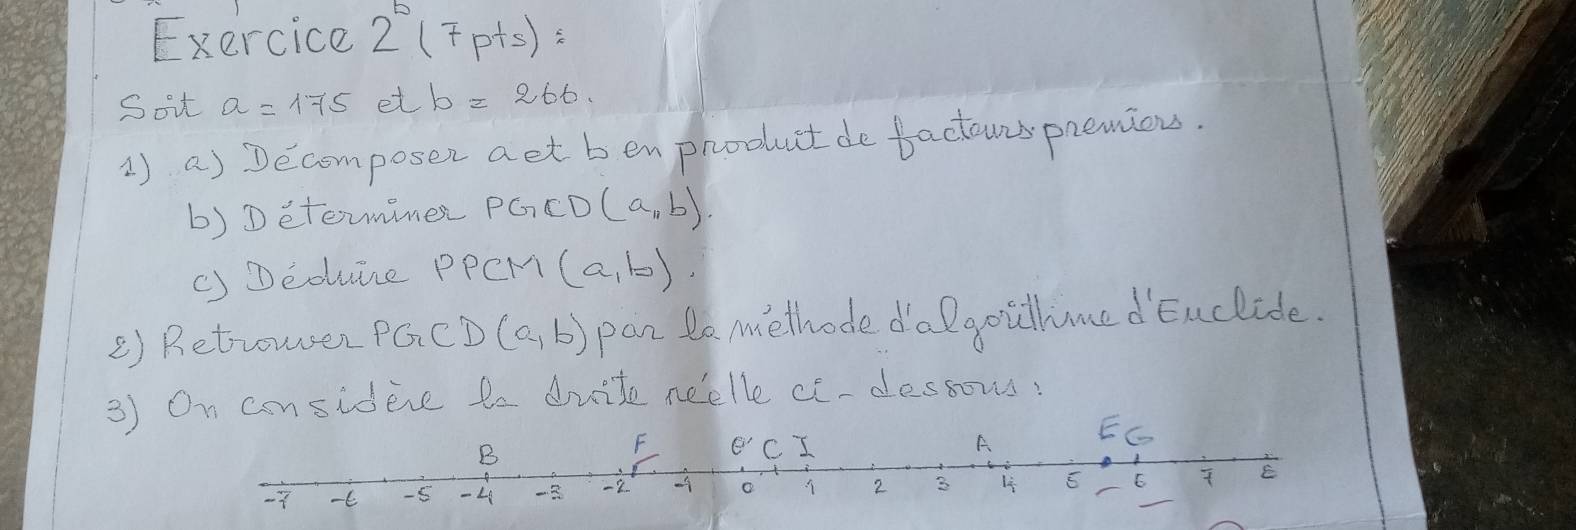 Exercice 2 (7pts) :
Soit a = 175 et b = 266.
1) a) Décomposer a et b en produit de facteurs premiers.
b) Déterminer PGCD(a,b).
c) Déduire PPCM (a,b).
2) Retrouver PGCD(a,b) par la méthode d'algorithme d'Euclide.
3) On considère la droite réelle ci-dessous :
B F O C I A E G
-7 -6 -5 -4 -3 -2 -1 0 1 2 3 4 5 6 7 8